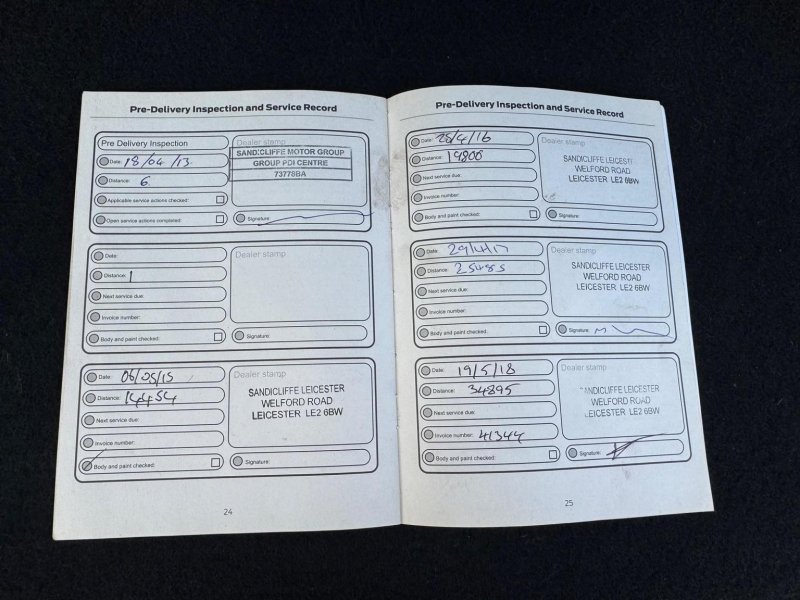 Pre-Delivery Inspection and Service Record
Pre Delivery Inspection
Date: 18/04/13
Distance: 6
Applicable service actions checked:
Open service actions completed:
Dealer stamp
SANDICLIFFE MOTOR GROUP
GROUP PDI CENTRE
73778BA
Signature:
Date:
Distance: 1
Next service due:
Invoice number:
Body and paint checked:
Dealer stamp
Signature:
Date: 06/05/15
Distance: 14454
Next service due:
Invoice number:
Body and paint checked:
Dealer stamp
SANDICLIFFE LEICESTER
WELFORD ROAD
LEICESTER LE2 6BW
Signature:
24
Pre-Delivery Inspection and Service Record
Date: 28/4/16
Distance: 19800
Next service due:
Invoice number:
Body and paint checked:
Dealer stamp
SANDICLIFFE LEICEST
WELFORD ROAD
LEICESTER LE2 6BW
Signature:
Date: 29/4/17
Distance: 25485
Next service due:
Invoice number:
Body and paint checked:
Dealer stamp
SANDICLIFFE LEICESTER
WELFORD ROAD
LEICESTER LE2 6BW
Signature:
Date: 19/5/18
Distance: 34895
Next service due:
Invoice number: 41344
Body and paint checked:
Dealer stamp
ANDICLIFFE LEICESTER
WELFORD ROAD
LEICESTER LE2 6BW
Signature:
25